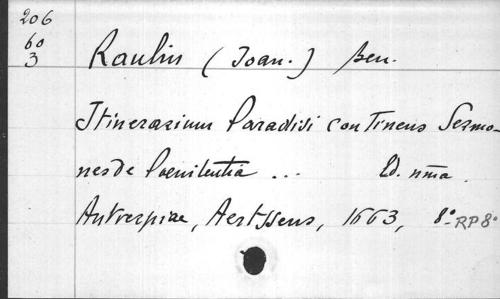 206
60
3
Raulin (Joan.) Ben.
Itinerarium Paradisi continens Sermo-
nes de Poenitentia ... Ed. nma.
Antverpiae, Aertssens, 1663, 8º-RP8º